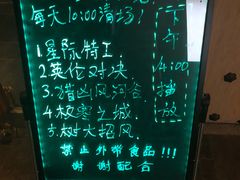 每天10:00清场!
1.星际特工
2.英伦对决
3.猎凶风河谷
4.极寒之城
5.树大招风
禁止外带食品!!!
谢谢配合
下午4:00播放